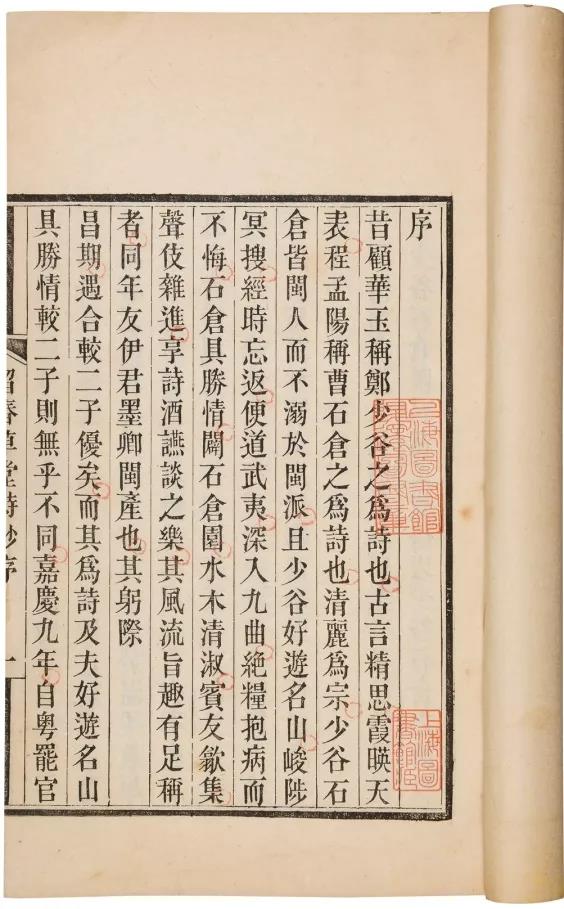 序
昔顧華玉稱鄭少谷之爲詩也古言精思霞暎天
表程孟陽稱曹石倉之爲詩也清麗爲宗少谷石
倉皆閩人而不溺於閩派且少谷好遊名山峻陟
冥搜經時忘返便道武夷深入九曲絶糧抱病而
不悔石倉具勝情闢石倉園水木清淑賓友歙集
聲伎雜進享詩酒讌談之樂其風流旨趣有足稱
者同年友伊君墨卿閩產也其躬際
昌期遇合較二子優矣而其爲詩及夫好遊名山
具勝情較二子則無乎不同嘉慶九年自粤罷官
留春草堂詩鈔序
一
上海圖書館藏
上海圖書館藏